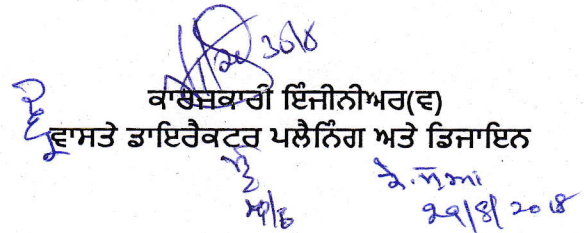 30/8
ਕਾਰਜਕਾਰੀ ਇੰਜੀਨੀਅਰ(ਵ)
ਵਾਸਤੇ ਡਾਇਰੈਕਟਰ ਪਲੈਨਿੰਗ ਅਤੇ ਡਿਜਾਇਨ
29/8/2018